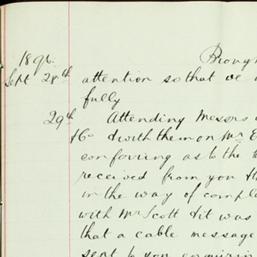 1896.
Sept 28th attention so that we
fully
29th Attending Messrs
&Co & with them on Mr
conferring as to the
received from you
in the way of
with Mr Scott & it was
that a cable message
sent to you